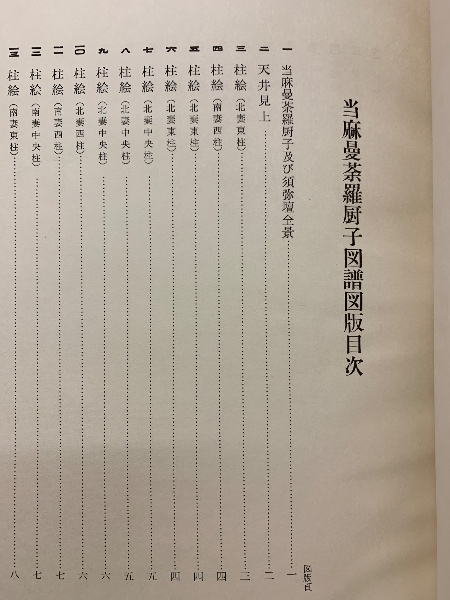 当麻曼荼羅厨子図譜図版目次
図版頁
一 当麻曼荼羅厨子及び須弥壇全景 一
二 天井見上 二
三 柱絵(北妻東柱) 三
四 柱絵(南妻西柱) 四
五 柱絵(北妻東柱) 四
六 柱絵(南妻東柱) 四
七 柱絵(北妻中央柱) 五
八 柱絵(北妻中央柱) 五
九 柱絵(北妻中央柱) 六
一〇 柱絵(北妻西柱) 六
一一 柱絵(南妻西柱) 七
一二 柱絵(南妻中央柱) 七
一三 柱絵(南妻東柱) 八